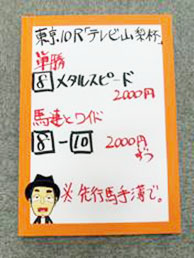 東京.10R「テレビ山梨杯」
単勝
8 メタルスピード
2000円
馬連とワイド
8-10 2000円
ずつ
※先行馬手薄で。